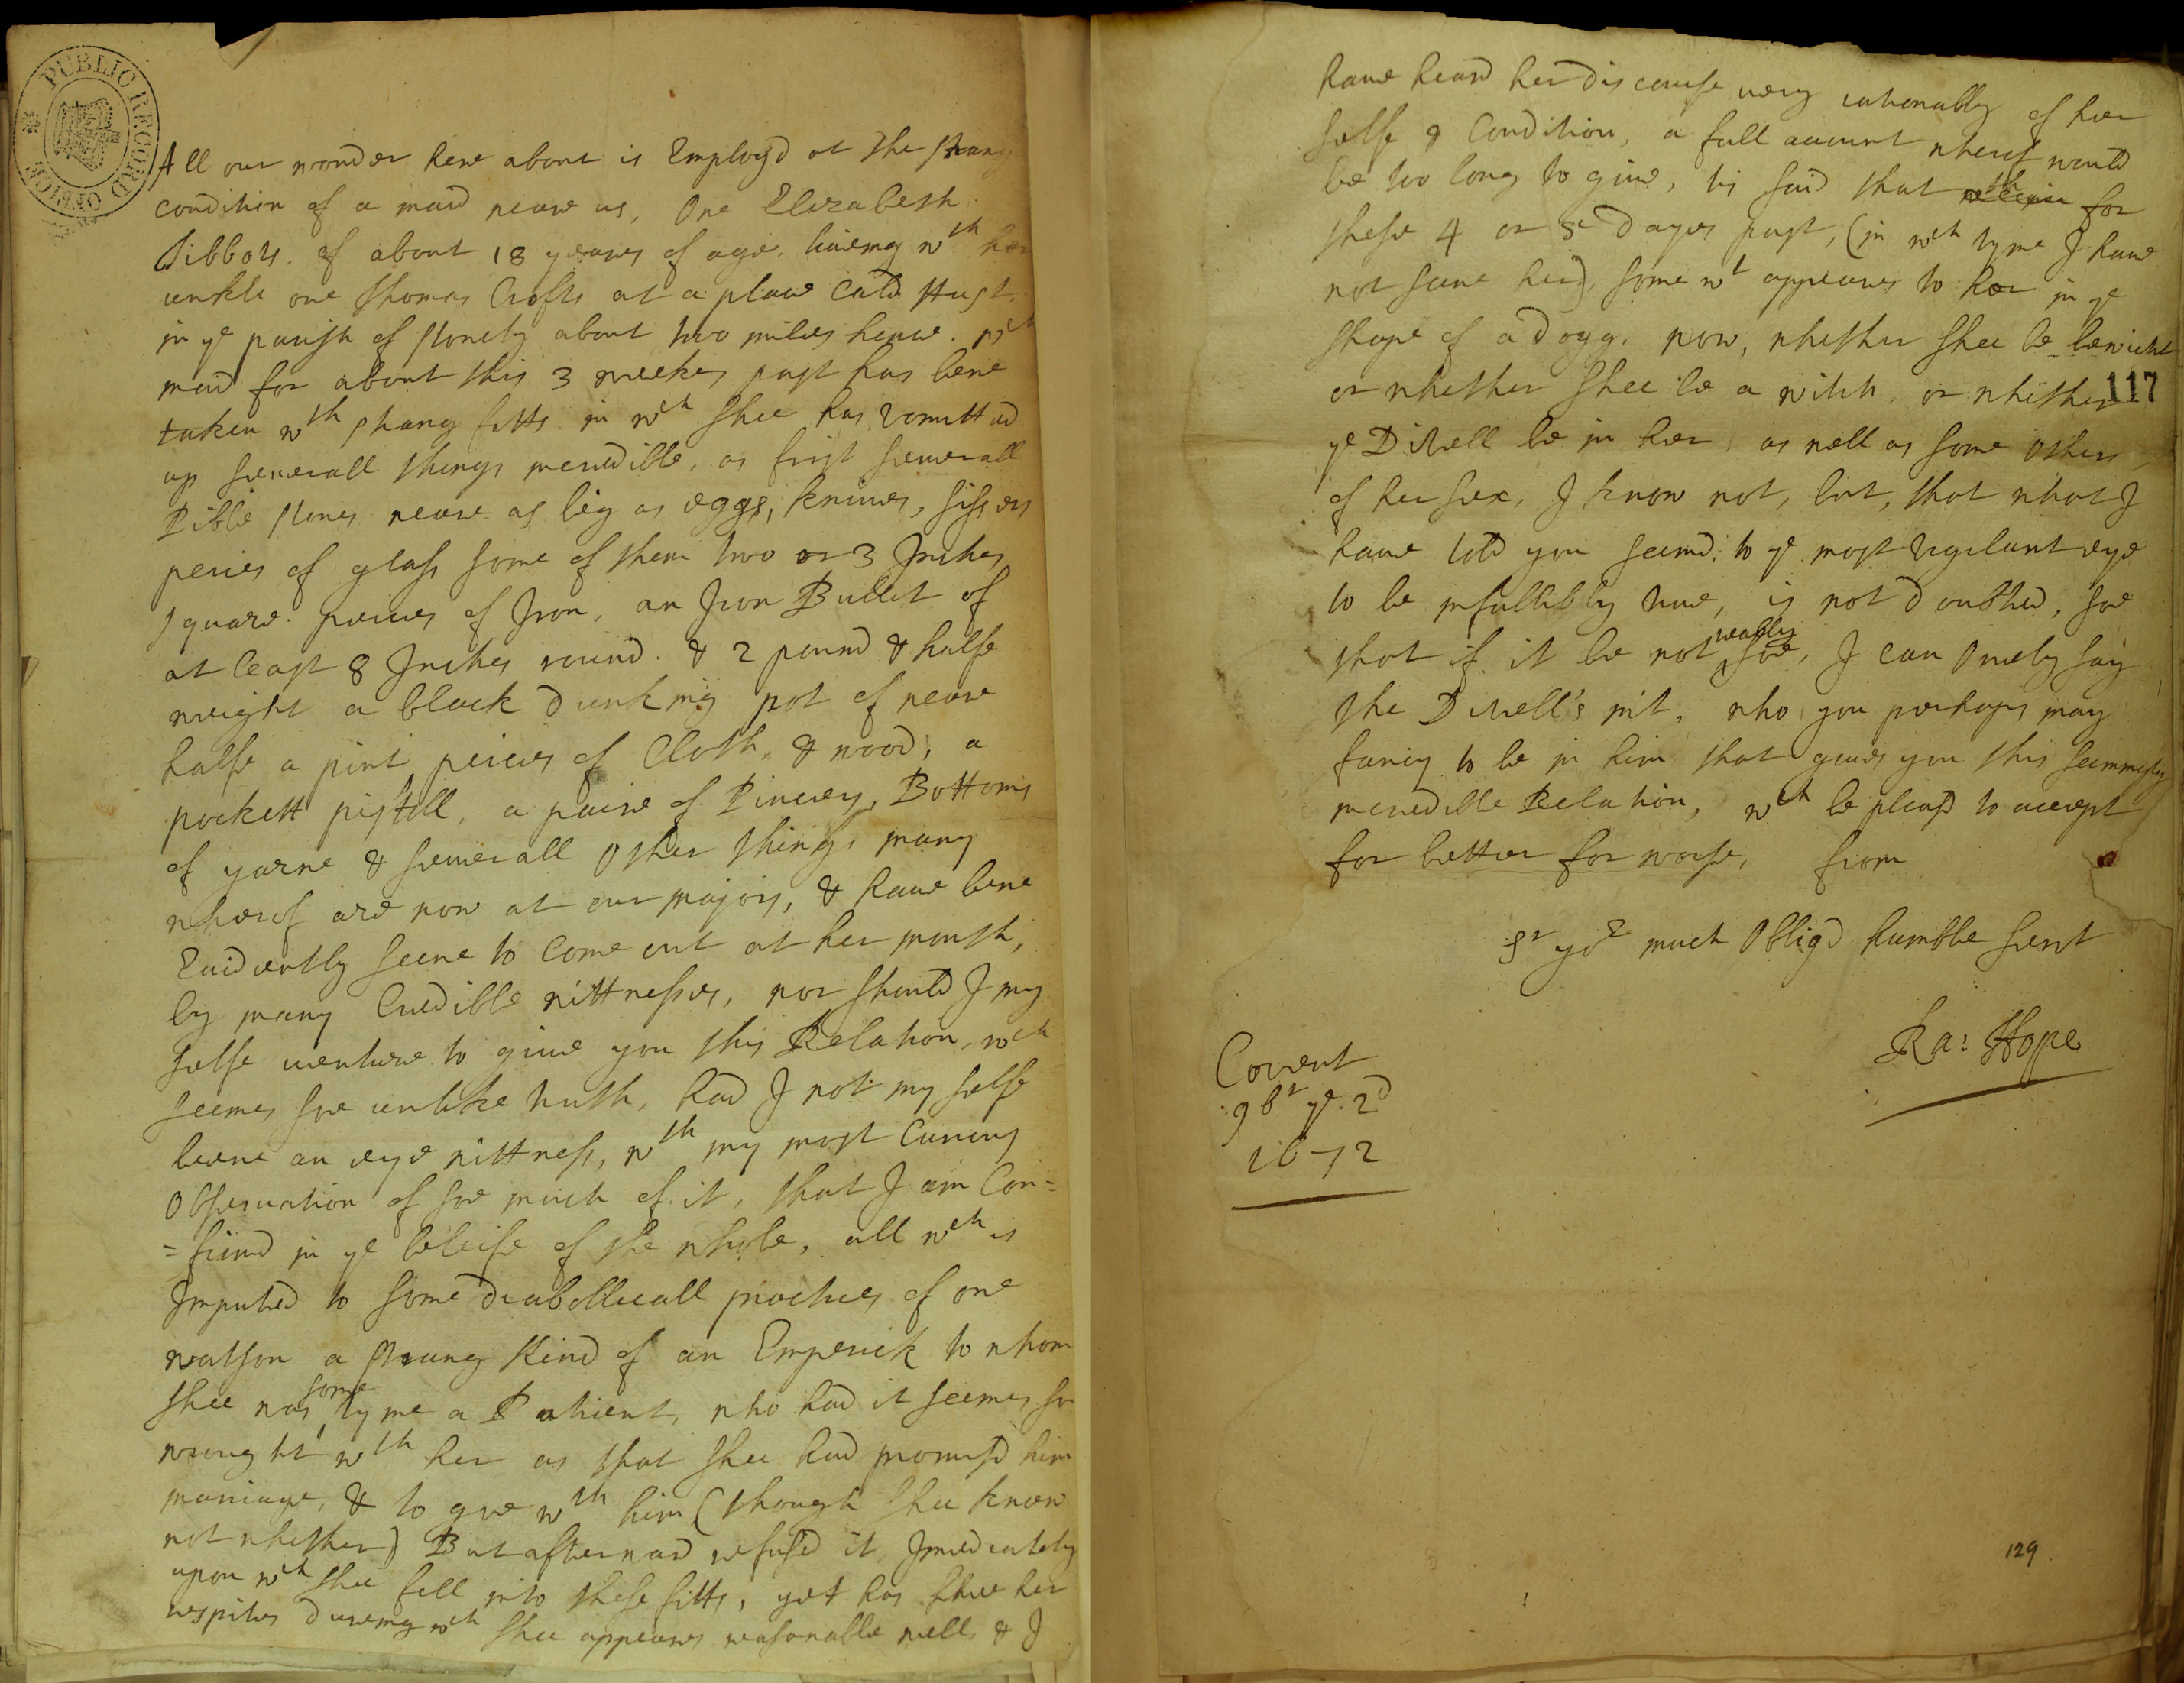 PUBLIC RECORD OFFICE
All our wonder here about is Employ'd at the strang
condition of a maid neare us, One Elizabeth
Tibbots. of about 18 yeares of age. liueing wth her
unkle one Thomas Crofts at a place Cal'd Hust.
in ye parish of Stonely about two miles hence. wch
maid for about this 3 weekes past has bene
taken wth strang fitts in wch shee has vomitted
up seuerall things incredible, as first seuerall
Pibble stones neare as big as eggs, kniues, sissers
peices of glass some of them two or 3 Inches
square. peices of Iron, an Iron Bullet of
at least 8 Inches round. & 2 pound & halfe
weight a black drinking pot of neare
halfe a pint peices of Cloth, & wood, a
pockett pistoll, a paire of Pincers, Bottoms
of yarne & seuerall other things many
whereof are now at our majors, & haue bene
Euidently seene to Come out at her mouth,
by many Credible wittnesses, nor should I my
selfe uenture to giue you this Relation, wch
seemes soe unlike truth, had I not my selfe
beene an eye wittness, wth my most Curious
Obseruation of soe much of it, that I am Con=
=firmd in ye beleife of the whole, all wch is
Imputed to some diabollicall practices of one
watson a strang Kind of an Emperick to whom
shee was some tyme a Patient, who had it seemes so
wrought wth her as that shee had promis'd him
mariage, & to goe wth him (though shee knew
not whether) But afterward refus'd it, Imediately
upon wch shee fell into these fitts, yet has shee her
respites dureing wch shee appeares reasonable well, & I
haue heard her discourse uery rationally of her
selfe & Condition, a full account whereof would
be too long to giue, tis said that wthin for
these 4 or 5 dayes past, (in wch tyme I haue
not seene her) some wt appeares to her in ye
shape of a dogg. now, whether shee be bewicht
or whether shee be a witch, or whether
117
ye Diuell be in her, as well as some others
of her sex, I know not, but, that what I
haue told you seemd, to ye most vigilant eye
to be infallibly true, is not doubted, soe
that if it be not really soe, I can Onely say
the Diuell's in't, who you perhaps may
fancy to be in him that giues you this seemingly
incredible Relation, wch be pleas'd to accept
for better for worse, from
Sr yor much Oblig'd humble serut
Ra: Hope
Couent
9br ye 2d
1672
129